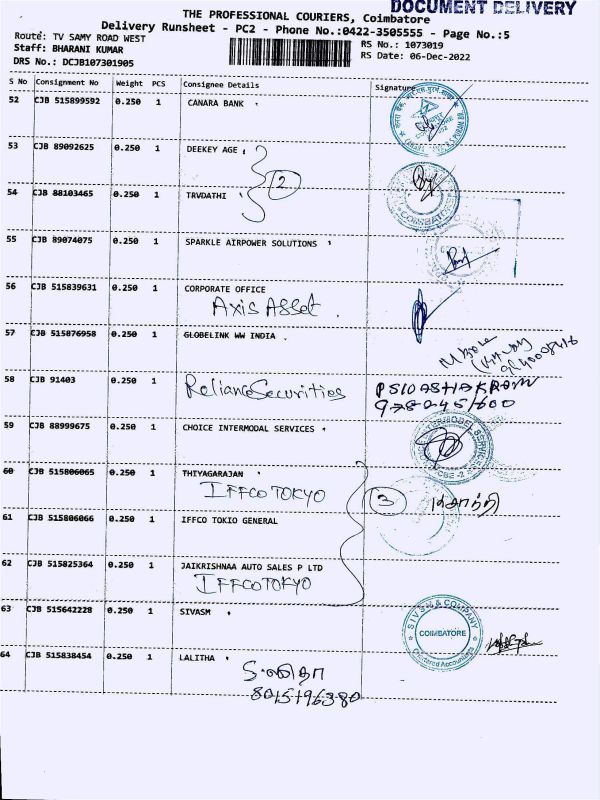 DOCUMENT DELIVERY
THE PROFESSIONAL COURIERS, Coimbatore
Delivery Runsheet - PC2 - Phone No.:0422-3505555 - Page No.:5
Route: TV SAMY ROAD WEST
RS No.: 1073019
Staff: BHARANI KUMAR
RS Date: 06-Dec-2022
DRS No.: DCJB107301905
S No Consignment No Weight PCS Consignee Details Signature
52 CJB 515899592 0.250 1 CANARA BANK
53 CJB 89092625 0.250 1 DEEKEY AGE
2
54 CJB 88103465 0.250 1 TRVDATHI
COIMBATORE
55 CJB 89074075 0.250 1 SPARKLE AIRPOWER SOLUTIONS
56 CJB 515839631 0.250 1 CORPORATE OFFICE
Axis Asset.
57 CJB 515876958 0.250 1 GLOBELINK WW INDIA
58 CJB 91403 0.250 1 Reliance Securities
59 CJB 88999675 0.250 1 CHOICE INTERMODAL SERVICES
60 CJB 515806065 0.250 1 THIYAGARAJAN
IFFCO TOKYO
3
61 CJB 515806066 0.250 1 IFFCO TOKIO GENERAL
62 CJB 515825364 0.250 1 JAIKRISHNAA AUTO SALES P LTD
IFFCO TOKYO
63 CJB 515642228 0.250 1 SIVASM
SIVSM & COMPANY
COIMBATORE
Chartered Accountants
64 CJB 515838454 0.250 1 LALITHA